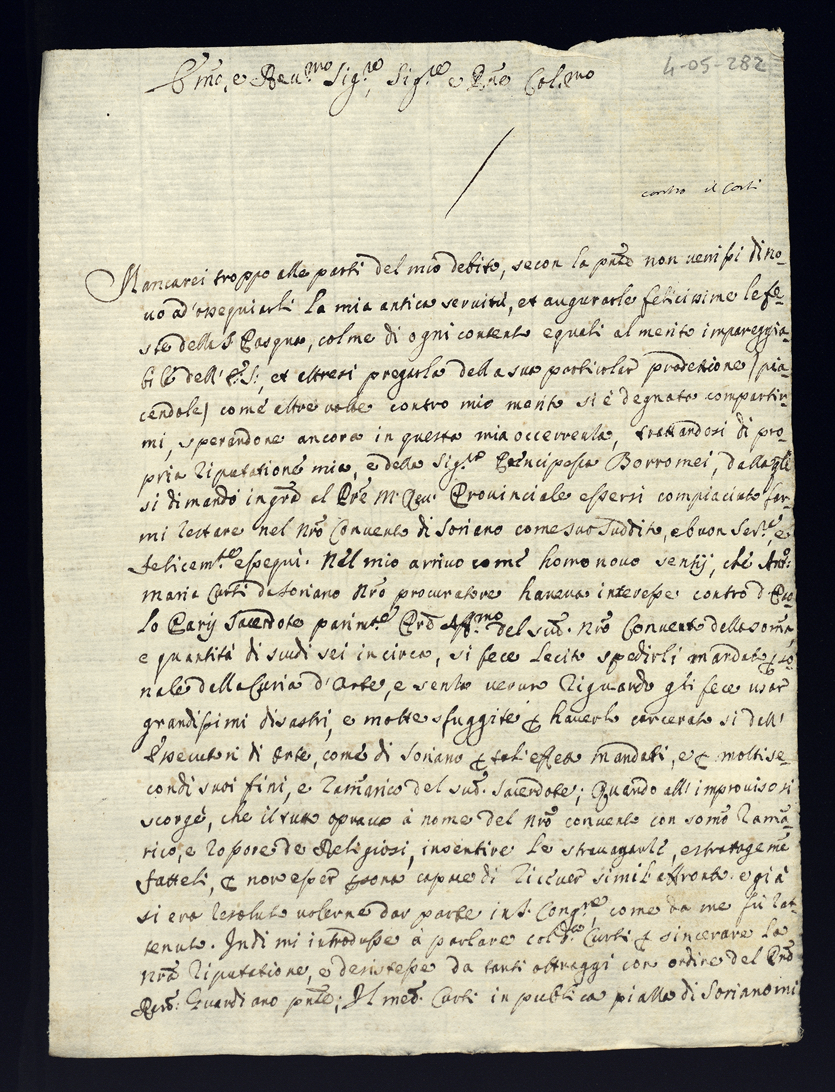 4-05-282
Em̃o, e Reu.mo Sig.re, Sig.re e Pñe Col.mo
contro il Corti
Mancarei troppo alle parti del mio debito, se con la pñte non venissi di no-
uo ad'ossequiarli la mia antica seruitù, et augurarle felicissime le fe-
ste della S. Pasqua, colme di ogni contento equali al merito impareggia-
bile dell' E. S:, et altresi pregarla della sua particolar protetione (pia-
cendole) come altre volte contro mio merito si è degnata compartir-
mi, sperandone ancora in questa mia occorrenza, trattandosi di pro-
pria riputatione mia, e della Sig.ra Principessa Borromei, dalla qle
si dimandò in grã al Pre M. Reu. Provinciale essersi compiaciuto far-
mi restare nel Nrõ Convento di Soriano come suo suddito, e buon Ser.re, e
felicem.te esseguì. Nel mio arriuo come homo nouo sentij, che Ant.
maria Curti da Soriano Nrõ procuratore haueua interesse contro D. Pao-
lo Parij Sacerdote parim.te del sud. Nrõ Convento della somã,
e quantità di scudi sei in circa, si fece lecito spedirli mandato
nale della Curia d'Orte, e senza verun riguardo gli fece usar
grandissimi disastri, e molte sfuggite ꝑ hauerlo carcerato si dell'
Essecutori di Orte, come di Soriano ꝑ tal'effetto mandati, e ꝑ molti se-
condi suoi fini, e ramarico del sud. Sacerdote; Quando all'improviso si
scorgè, che il tutto opraua à nome del Nrõ convento con somõ ramã-
rico, e rossore de Religiosi, in sentire le strauaganze, e stratageme
fatteli, ꝑ non esser ꝑsona capace di riceuer simil'affronto. e già
si era resoluto volerne dar parte in S. Cong.ne, come da me fù rat-
tenuto. Indi mi introdusse à parlare col d.to Curti ꝑ sincerare la
Nrã riputatione, e desistesse da tanti oltraggi con ordine del Prõ
Guardiano pñte; Il med. Curti in publica piazza di Soriano mi